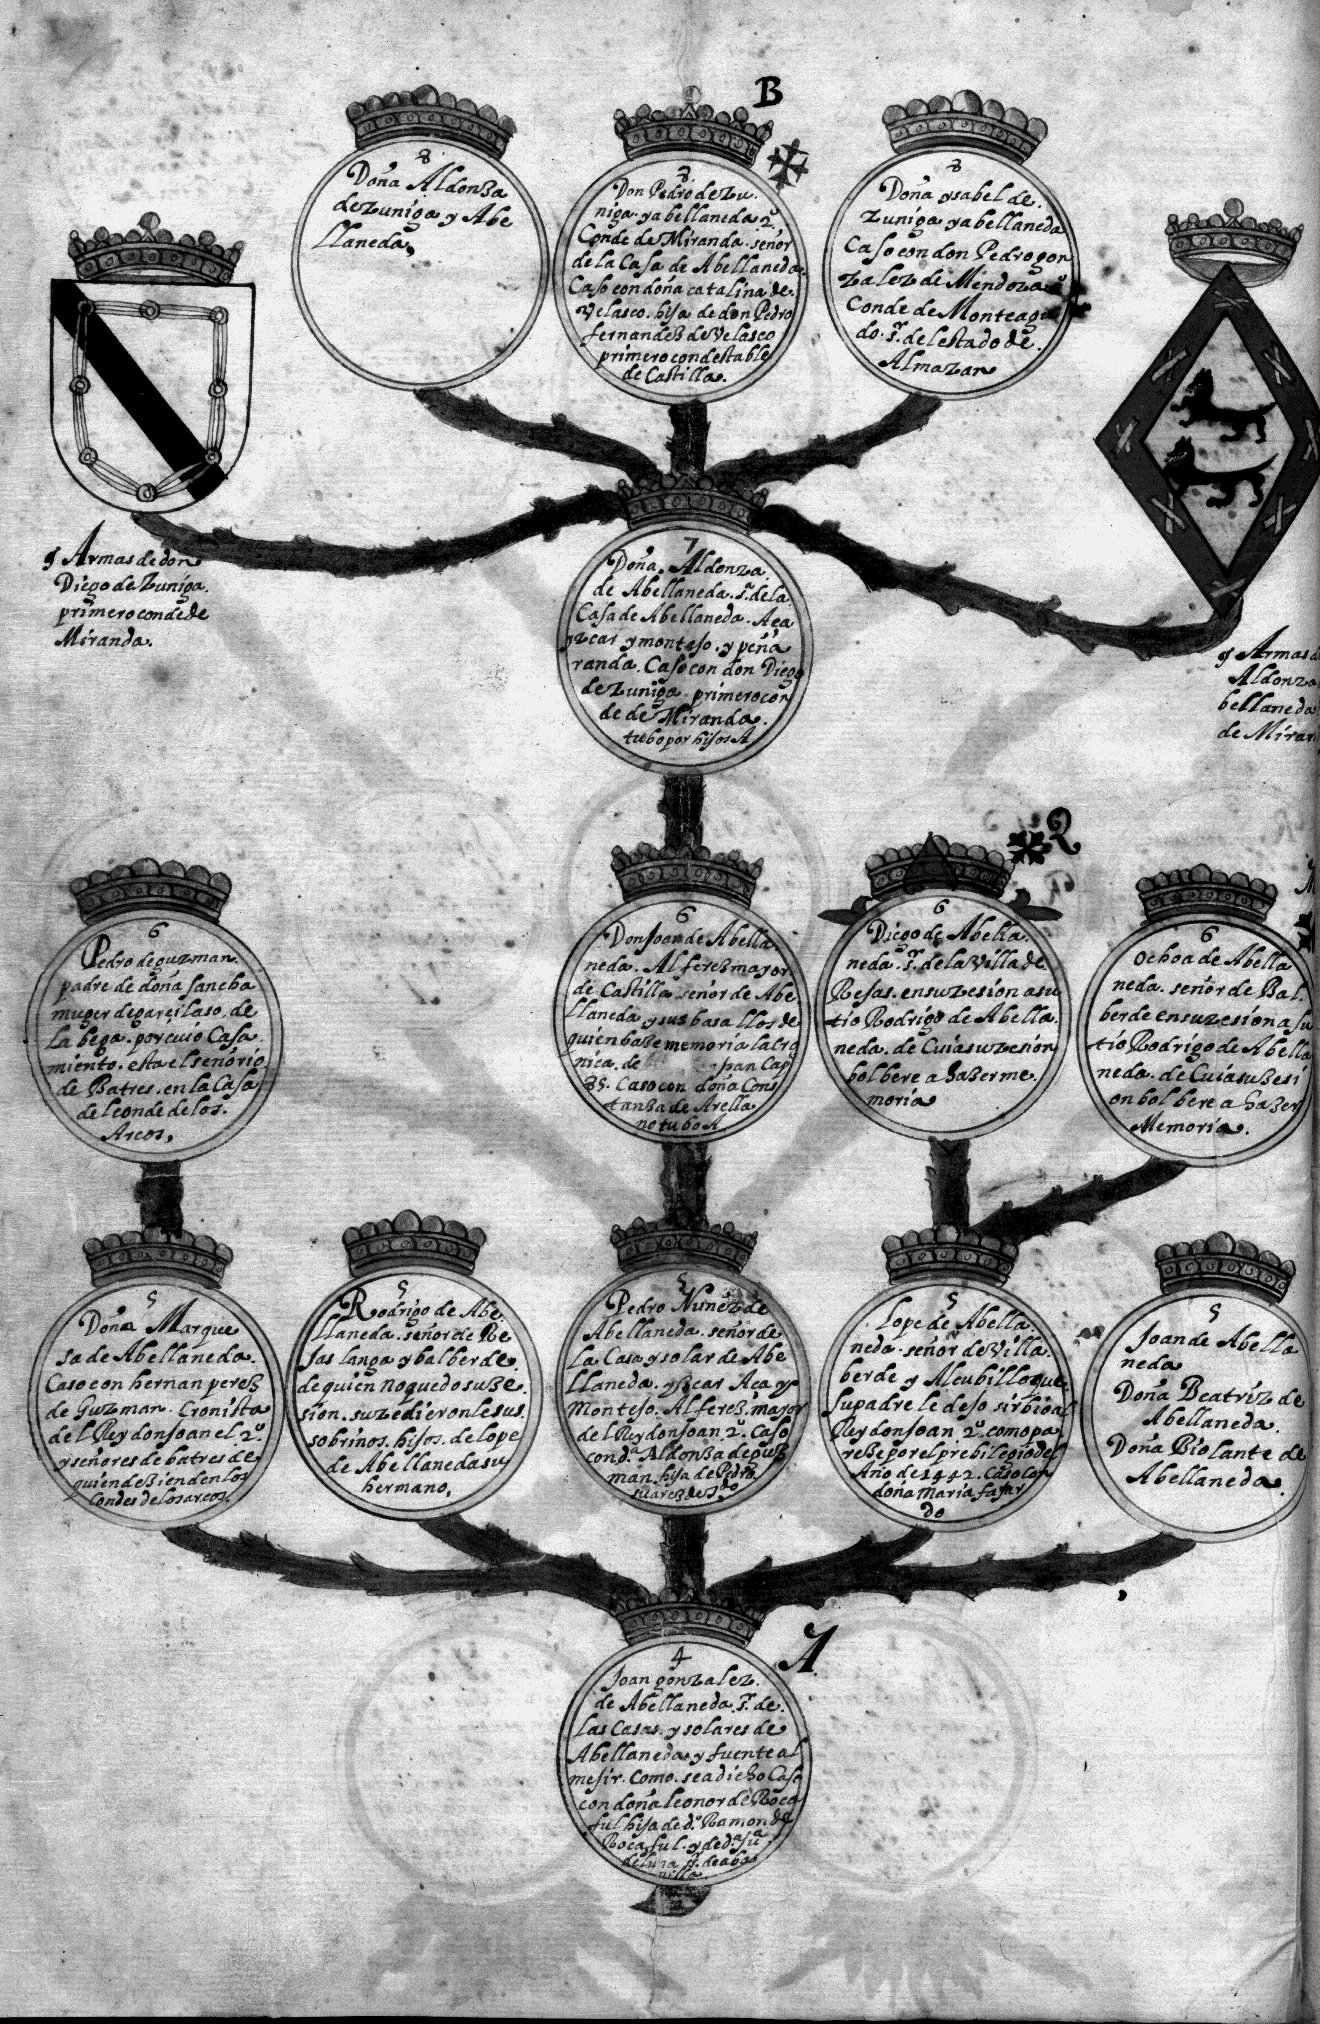 B
8
Doña Aldonza
de zuniga y Abe
llaneda,
8
Don Pedro de zu
niga y abellaneda 2º
Conde de Miranda señor
de la Casa de Abellaneda.
Caso con doña catalina de
velasco. hija de don Pedro
fernandez de velasco
primero condestable
de Castilla.
8
Doña ysabel de
zuniga y abellaneda
Caso con don Pedro gon
zalez de Mendoza
Conde de Monteagu
do. sr. del estado de
Almazan
Armas de don
Diego de Zuniga.
primero conde de
Miranda.
7
Doña. Aldonza
de Abellaneda. sª. de la
Casa de Abellaneda. Aça
yzcar y montejo. y peña
randa. Caso con don Diego
de zuniga. primero con
de de Miranda.
tubo por hijos A
Armas d
Aldonza
bellaneda
de Miran
6
Pedro de guzman.
padre de doña sancha
muger de garcilaso. de
la bega. por cuio Casa
miento. esta el señorio
de Batres. en la Casa
del conde de los.
Arcos,
6
Don Joan de Abella
neda. Alferez mayor
de Castilla señor de Abe
llaneda y sus basallos de
quien haze memoria la cro
nica. de pan Cap
85. Caso con doña Cons
tanza de Arella
no tubo A
2
6
Diego de Abella.
neda. sr. de la villa de
Resas. en suzesion a su
tio Rodrigo de Abella.
neda. de Cuia suzesion
bolbere a hazer me.
moria
6
ochoa de Abella
neda. señor de Bal.
berde en suzesion a su
tio Rodrigo de Abella
neda. de Cuia suzesi
on bolbere a hazer
Memoria.
5
Doña Marque
sa de Abellaneda.
Caso con hernan perez
de Guzman. Cronista
del Rey don Joan el 2º.
y señores de batres de
quien dezienden los
Condes de los arcos.
5
Rodrigo de Abe.
llaneda. señor de Re
sas langa y balberde.
de quien no quedo suze.
sion. suzedieronle sus.
sobrinos. hijos. de lope
de Abellaneda su
hermano,
5
Pedro Nuñez de
Abellaneda. señor de
la Casa y solar de Abe
llaneda. yzcar Aça y
Montejo. Alferez. mayor
del Rey don Joan 2º. Caso
con dª. Aldonza de guz
man. hija de Pedro
suarez de
5
lope de Abella
neda. señor de villa.
berde y Alcubilla que
su padre le dejo sirbio al
Rey don Joan 2º. como pa
reze por el prebilegio del
Año de 1442. Caso con
doña maria fajar
do
5
Joan de Abella
neda
Doña Beatriz de
Abellaneda.
Doña Biolante de
Abellaneda.
A.
4
Joan gonzalez.
de Abellaneda. sr. de
las Casas. y solares de
Abellaneda y fuente al
mesir. Como. se a dicho Caso
con doña leonor de Roca
ful hija de dº. Ramon de
Roca ful. y de dª.
de luna sª. de aba
nilla